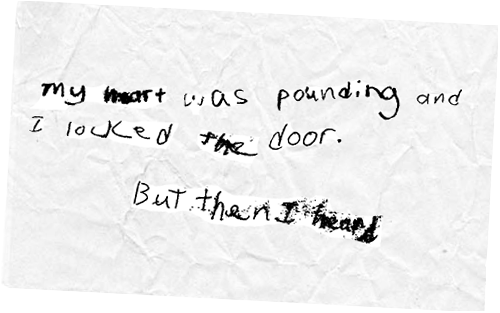 my heart was pounding and
I locked the door.
But then I heard